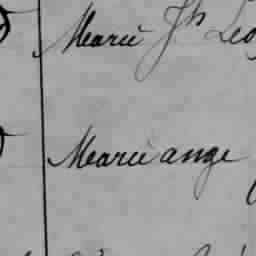 Marie Jh Leo
Marie ange